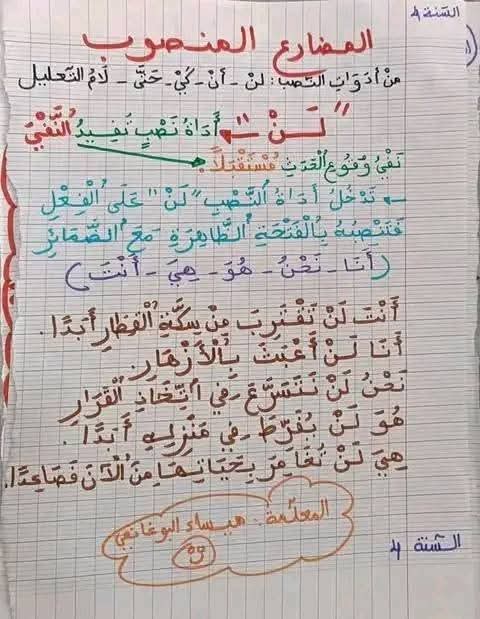 السّنة 4
المضارع المنصوب
من أدوات النّصب: لن - أن - كي - حتّى - لام التّعليل
"لَنْ" ← أَدَاةُ نَصْبٍ تُفِيدُ النَّفْيَ
نَفْيُ وُقُوعِ الْحَدَثِ مُسْتَقْبَلًا.
← تَدْخُلُ أَدَاةُ النَّصْبِ "لَنْ" عَلَى الْفِعْلِ
فَتَنْصِبُهُ بِالْفَتْحَةِ الظَّاهِرَةِ مَعَ الضَّمَائِرِ
(أَنَا - نَحْنُ - هُوَ - هِيَ - أَنْتَ)
أَنْتَ لَنْ تَقْتَرِبَ مِنْ سِكَّةِ الْقِطَارِ أَبَدًا.
أَنَا لَنْ أَعْبَثَ بِالْأَزْهَارِ.
نَحْنُ لَنْ نَتَسَرَّعَ فِي اتِّخَاذِ الْقَرَارِ
هُوَ لَنْ يُفَرِّطَ فِي مَنْزِلِهِ أَبَدًا.
هِيَ لَنْ تُغَامِرَ بِحَيَاتِهَا مِنَ الْآنَ فَصَاعِدًا.
المعلّمة: ميساء البوغانمي
السّنة 4